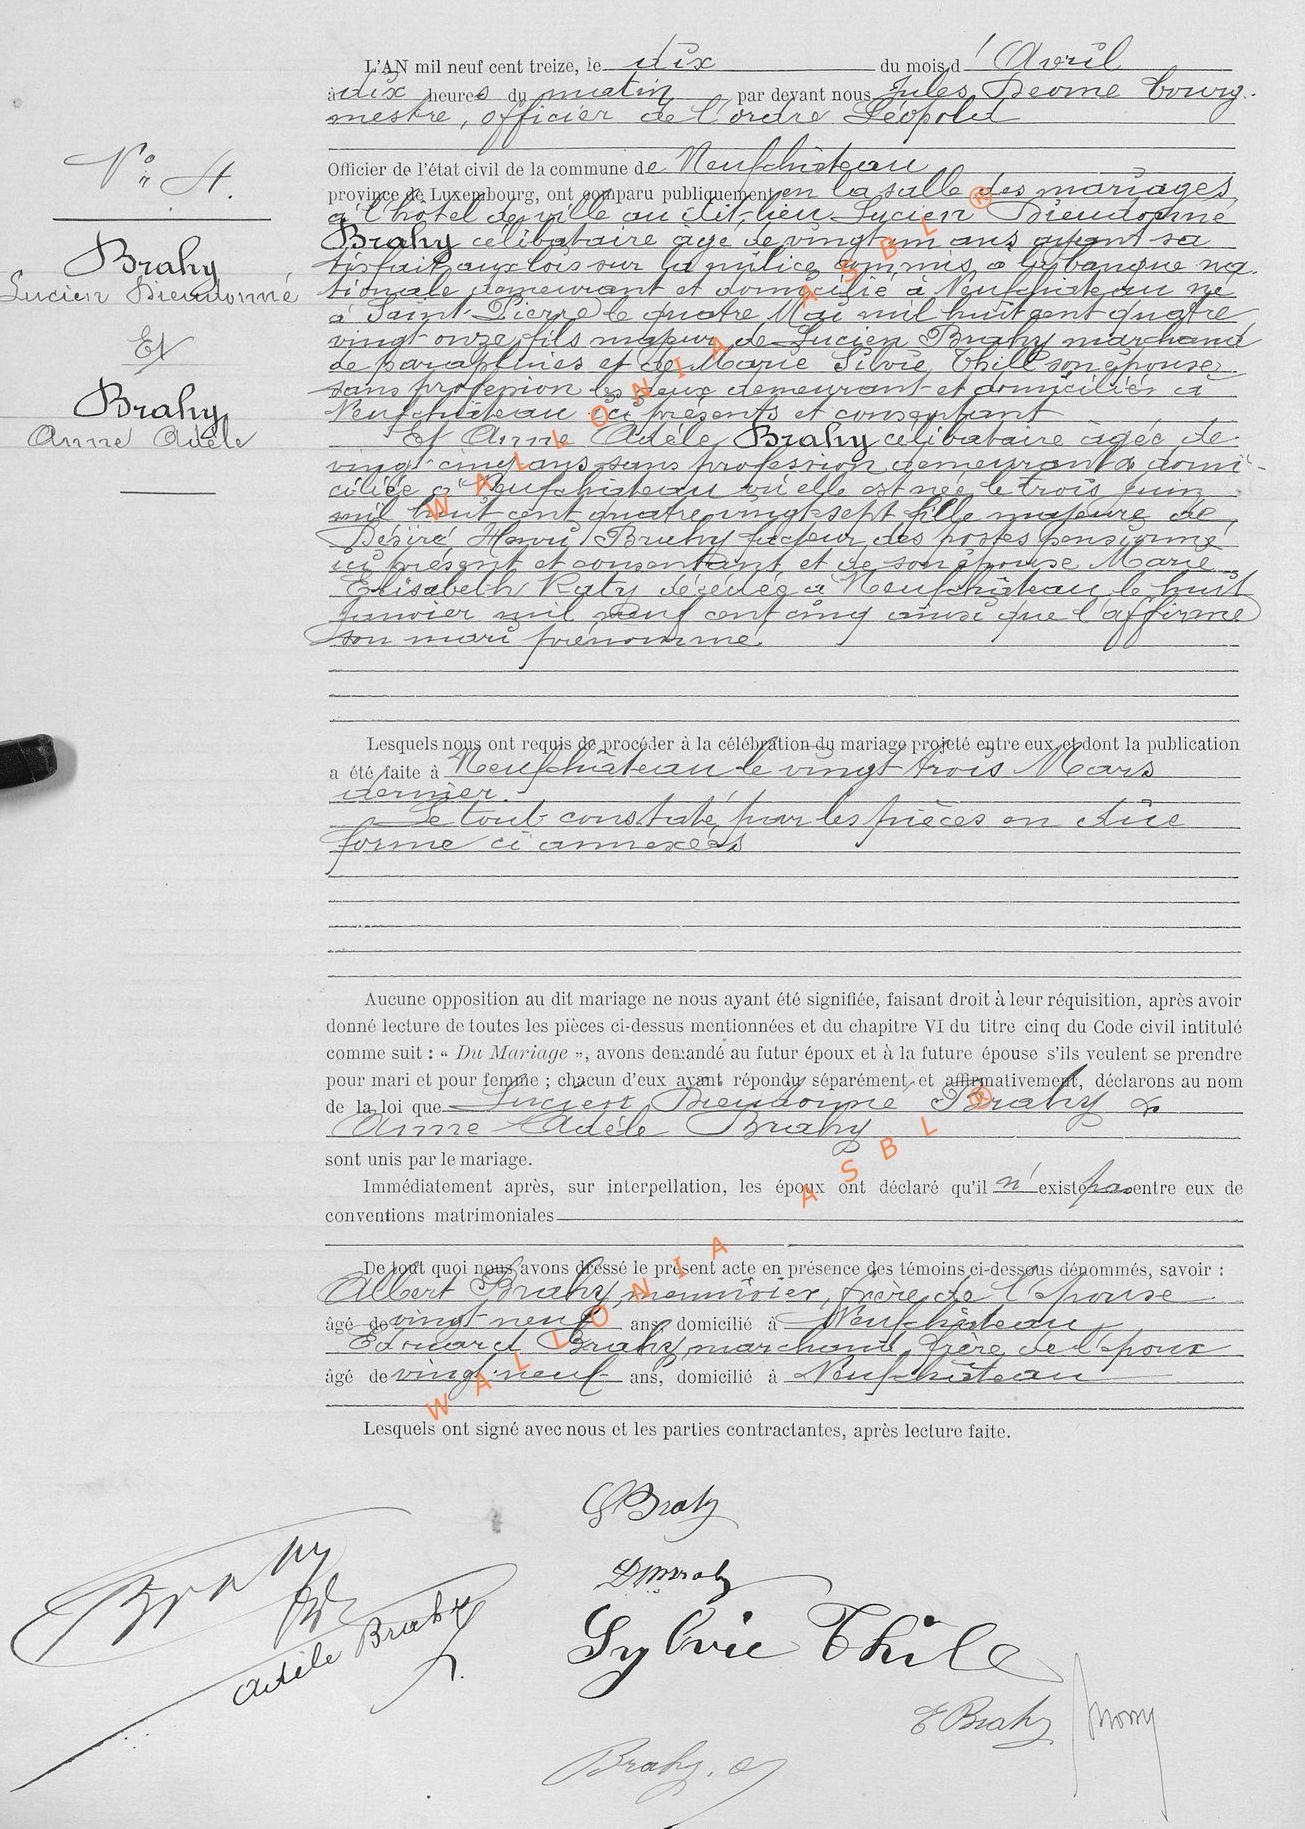 N° 4.
Brahy
Lucien Dieudonné
Et
Brahy
Anne Adèle
L'AN mil neuf cent treize, le dix du mois d'Avril
à dix heures du matin par devant nous Jules bourg-
mestre, officier de l'ordre Léopold
Officier de l'état civil de la commune de Neufchâteau
province de Luxembourg, ont comparu publiquement en la salle des mariages
à l'hôtel de ville au dit lieu Lucien Dieudonné
Brahy célibataire âgé de vingt un ans ayant sa
tisfait aux lois sur la milice commis à la banque na
tionale demeurant et domicilié à Neufchâteau né
à Saint-Pierre le quatre Mai mil huit cent quatre
vingt onze fils majeur de Lucien Brahy marchand
de parapluies et de Marie Silvie Thill son épouse
sans profession les deux demeurant et domiciliés à
Neufchâteau ici présents et consentant
Et Anne Adèle Brahy célibataire âgée de
vingt-cinq ans sans profession demeurant & domi-
ciliée à Neufchâteau où elle est née le trois juin
mil huit cent quatre vingt-sept fille majeure de
Désiré Henri Brahy facteur des postes pensionné
ici présent et consentant et de son épouse Marie
Elisabeth Katy décédée à Neufchâteau le huit
janvier mil neuf cent cinq ainsi que l'affirme
son mari prénommé
Lesquels nous ont requis de procéder à la célébration du mariage projeté entre eux et dont la publication
a été faite à Neufchâteau le vingt trois Mars
dernier.
Le tout constaté par les pièces en due
forme ci annexées
Aucune opposition au dit mariage ne nous ayant été signifiée, faisant droit à leur réquisition, après avoir
donné lecture de toutes les pièces ci-dessus mentionnées et du chapitre VI du titre cinq du Code civil intitulé
comme suit : « Du Mariage », avons demandé au futur époux et à la future épouse s'ils veulent se prendre
pour mari et pour femme ; chacun d'eux ayant répondu séparément et affirmativement, déclarons au nom
de la loi que Lucien Dieudonné Brahy &
Anne Adèle Brahy
sont unis par le mariage.
Immédiatement après, sur interpellation, les époux ont déclaré qu'il n'existe pas entre eux de
conventions matrimoniales
De tout quoi nous avons dressé le présent acte en présence des témoins ci-dessous dénommés, savoir :
Albert Brahy, menuisier, frère de l'épouse
âgé de vingt-neuf ans, domicilié à Neufchâteau
Edouard Brahy, marchand, frère de l'époux
âgé de vingt-neuf ans, domicilié à Neufchâteau
Lesquels ont signé avec nous et les parties contractantes, après lecture faite.
Brahy
Brahy
Adèle Brahy
Sylvie Thill
E Brahy
Brahy.
WALLONIA ASBL ®
WALLONIA ASBL ®